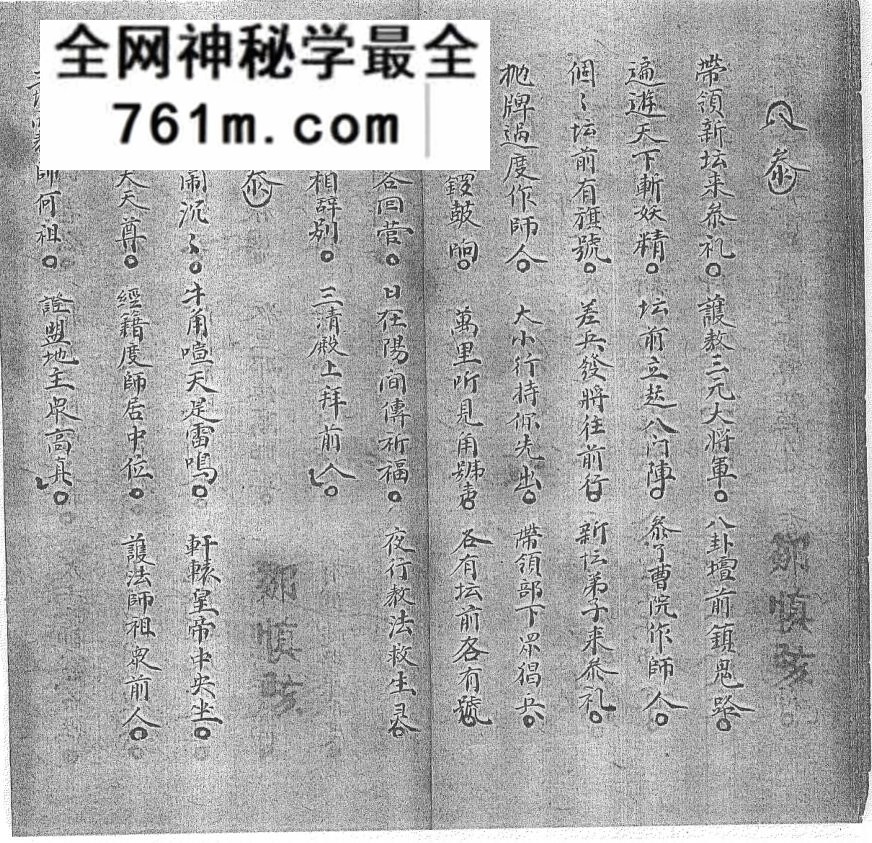 全网神秘学最全
761m.com
八叅
帶領新坛来叅礼。護教三元大將軍。八卦壇前鎮鬼路。
遍遊天下斬妖精。坛前立起八门陣。叅了曹院作師人。
個〻坛前有旗號。差兵發將往前行。新坛弟子来叅礼。
抛牌過度作師人。大小行持你先出。帶領部下眾猖兵。
鑼皷响。萬里听見角號声。各有坛前各有號。
各回营。日在陽间傳祈福。夜行教法救生灵。
相辞别。三清殿上拜前人。
叅
鄒順
鬧沉〻。牛角喧天是雷鳴。軒轅皇帝中央坐。
天尊。經籍度師居中位。護法師祖众前人。
師何祖。證盟地主眾高真。